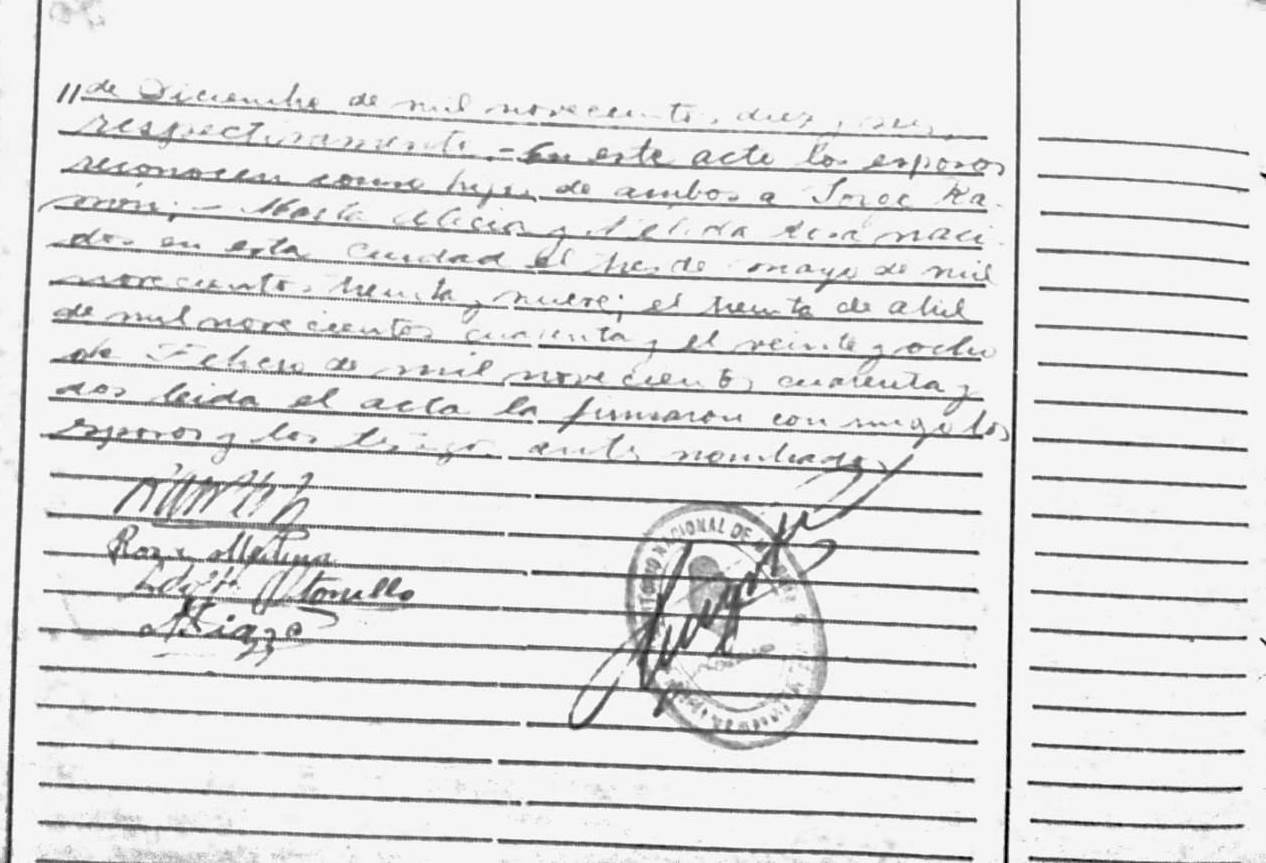 de Diciembre de mil novecientos diez y seis
respectivamente.- En este acto los esposos
reconocen como hijos de ambos a Jorge Ra-
món; - Marta Alicia y Nélida Rosa naci-
dos en esta ciudad el tres de mayo de mil
novecientos treinta y nueve; el treinta de abril
de mil novecientos cuarenta y el veinte y ocho
de Febrero de mil novecientos cuarenta y
dos leida el acta la firmaron con migo los
esposos y los testigos antes nombrados
Rosa Medina
Otonello
TORIO NACIONAL DE